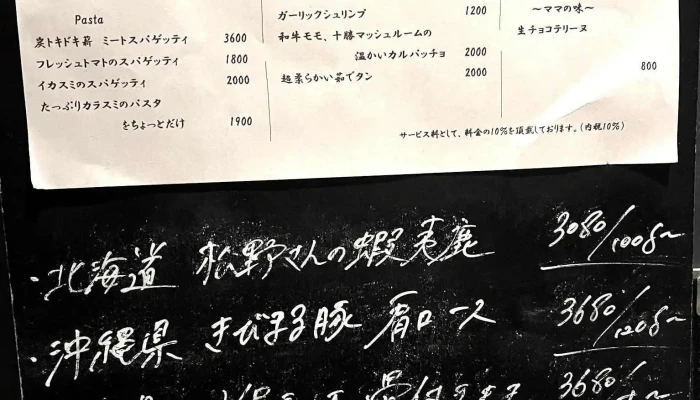 Pasta
炭トキドキ薪 ミートスパゲッティ 3600
フレッシュトマトのスパゲッティ 1800
イカスミのスパゲッティ 2000
たっぷりカラスミのパスタ
をちょっとだけ 1900
ガーリックシュリンプ 1200
和牛モモ、十勝マッシュルームの
温かいカルパッチョ 2000
超柔らかい茹でタン 2000
〜ママの味〜
生チョコテリーヌ
800
サービス料として、料金の10%を頂戴しております。(内税10%)
・北海道 松野さんの蝦夷鹿 3080/100g〜
・沖縄県 きび子豚 肩ロース 3680/120g〜
3680/